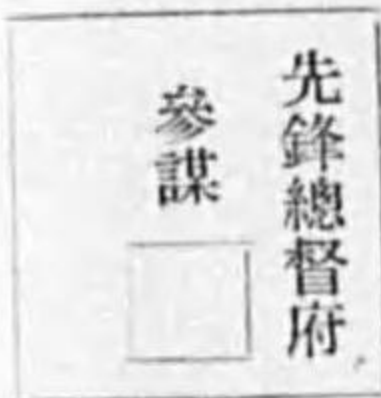 先鋒總督府
參謀